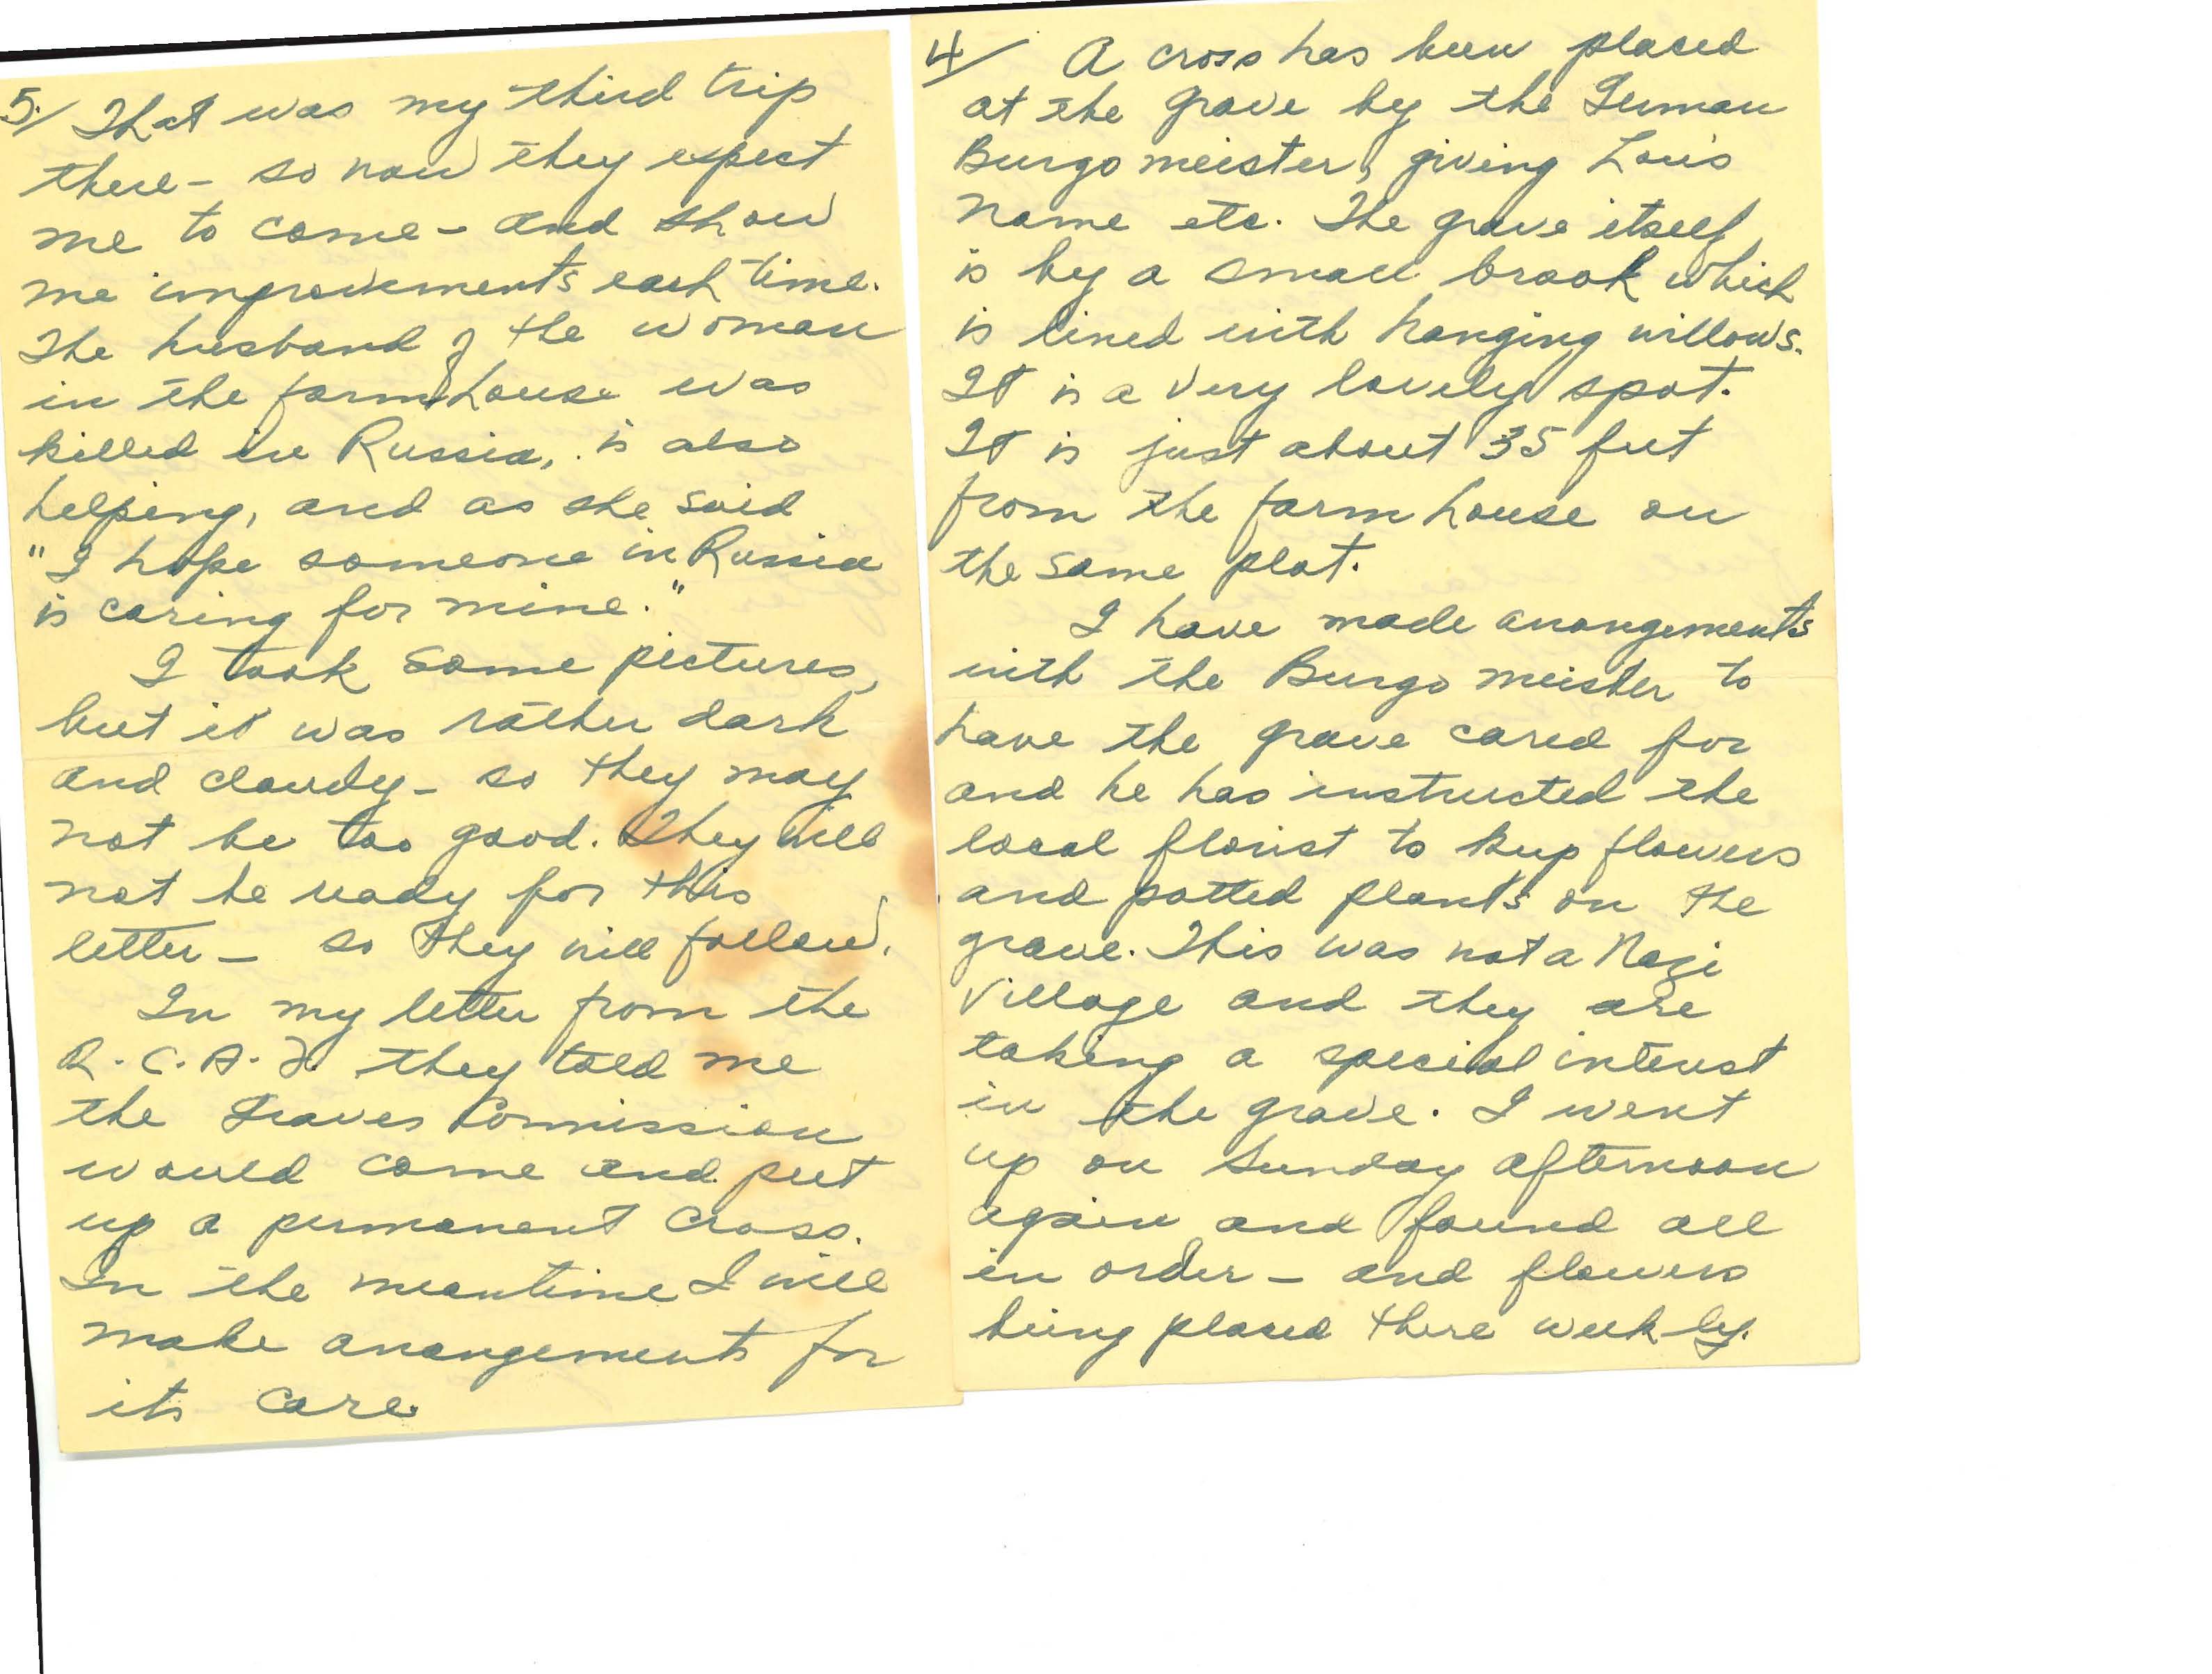 4/ A cross has been placed
at the grave by the German
Burgo meister, giving Lou's
name etc. The grave itself
is by a small brook which
is lined with hanging willows.
It is a very lovely spot.
It is just about 35 feet
from the farm house on
the same plot.
I have made arrangements
with the Burgo meister to
have the grave cared for
and he has instructed the
local florist to keep flowers
and potted plants on the
grave. This was not a Nazi
Village and they are
taking a special interest
in the grave. I went
up on Sunday afternoon
again and found all
in order - and flowers
being placed there weekly.
5./ That was my third trip
there - so now they expect
me to come - and show
me improvements each time.
The husband of the woman
in the farm house was
killed in Russia, is also
helping, and as she said
"I hope someone in Russia
is caring for mine."
I took some pictures,
but it was rather dark
and cloudy - so they may
not be too good. They will
not be ready for this
letter - so they will follow.
In my letter from the
R.C.A.F. they told me
the Graves Commission
would come and put
up a permanent cross.
In the meantime I will
make arrangements for
its care.